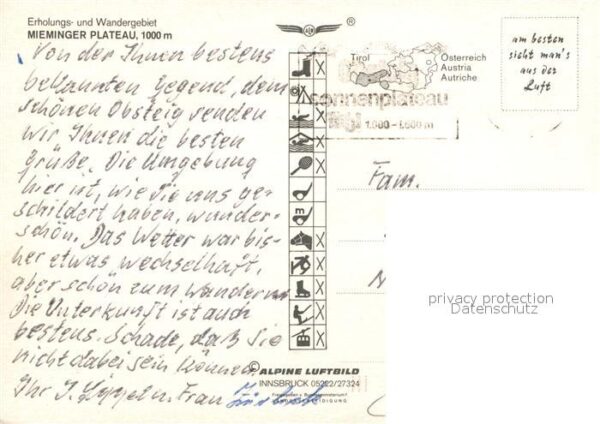 Erholungs- und Wandergebiet
MIEMINGER PLATEAU, 1000 m
Von der Ihnen bestens
bekannten Gegend, dem
schönen Obsteig senden
wir Ihnen die besten
Grüße. Die Umgebung
hier ist, wie Sie uns ge-
schildert haben, wunder-
schön. Das Wetter war bis-
her etwas wechselhaft,
aber schön zum Wandern
Die Unterkunft ist auch
bestens. Schade, daß Sie
nicht dabei sein können.
Ihr J. u. Frau
Tirol
Österreich
Austria
Autriche
sonnenplateau
am besten
sieht man's
aus der
Luft
Fam.
privacy protection
Datenschutz
© ALPINE LUFTBILD
INNSBRUCK 05222/27324